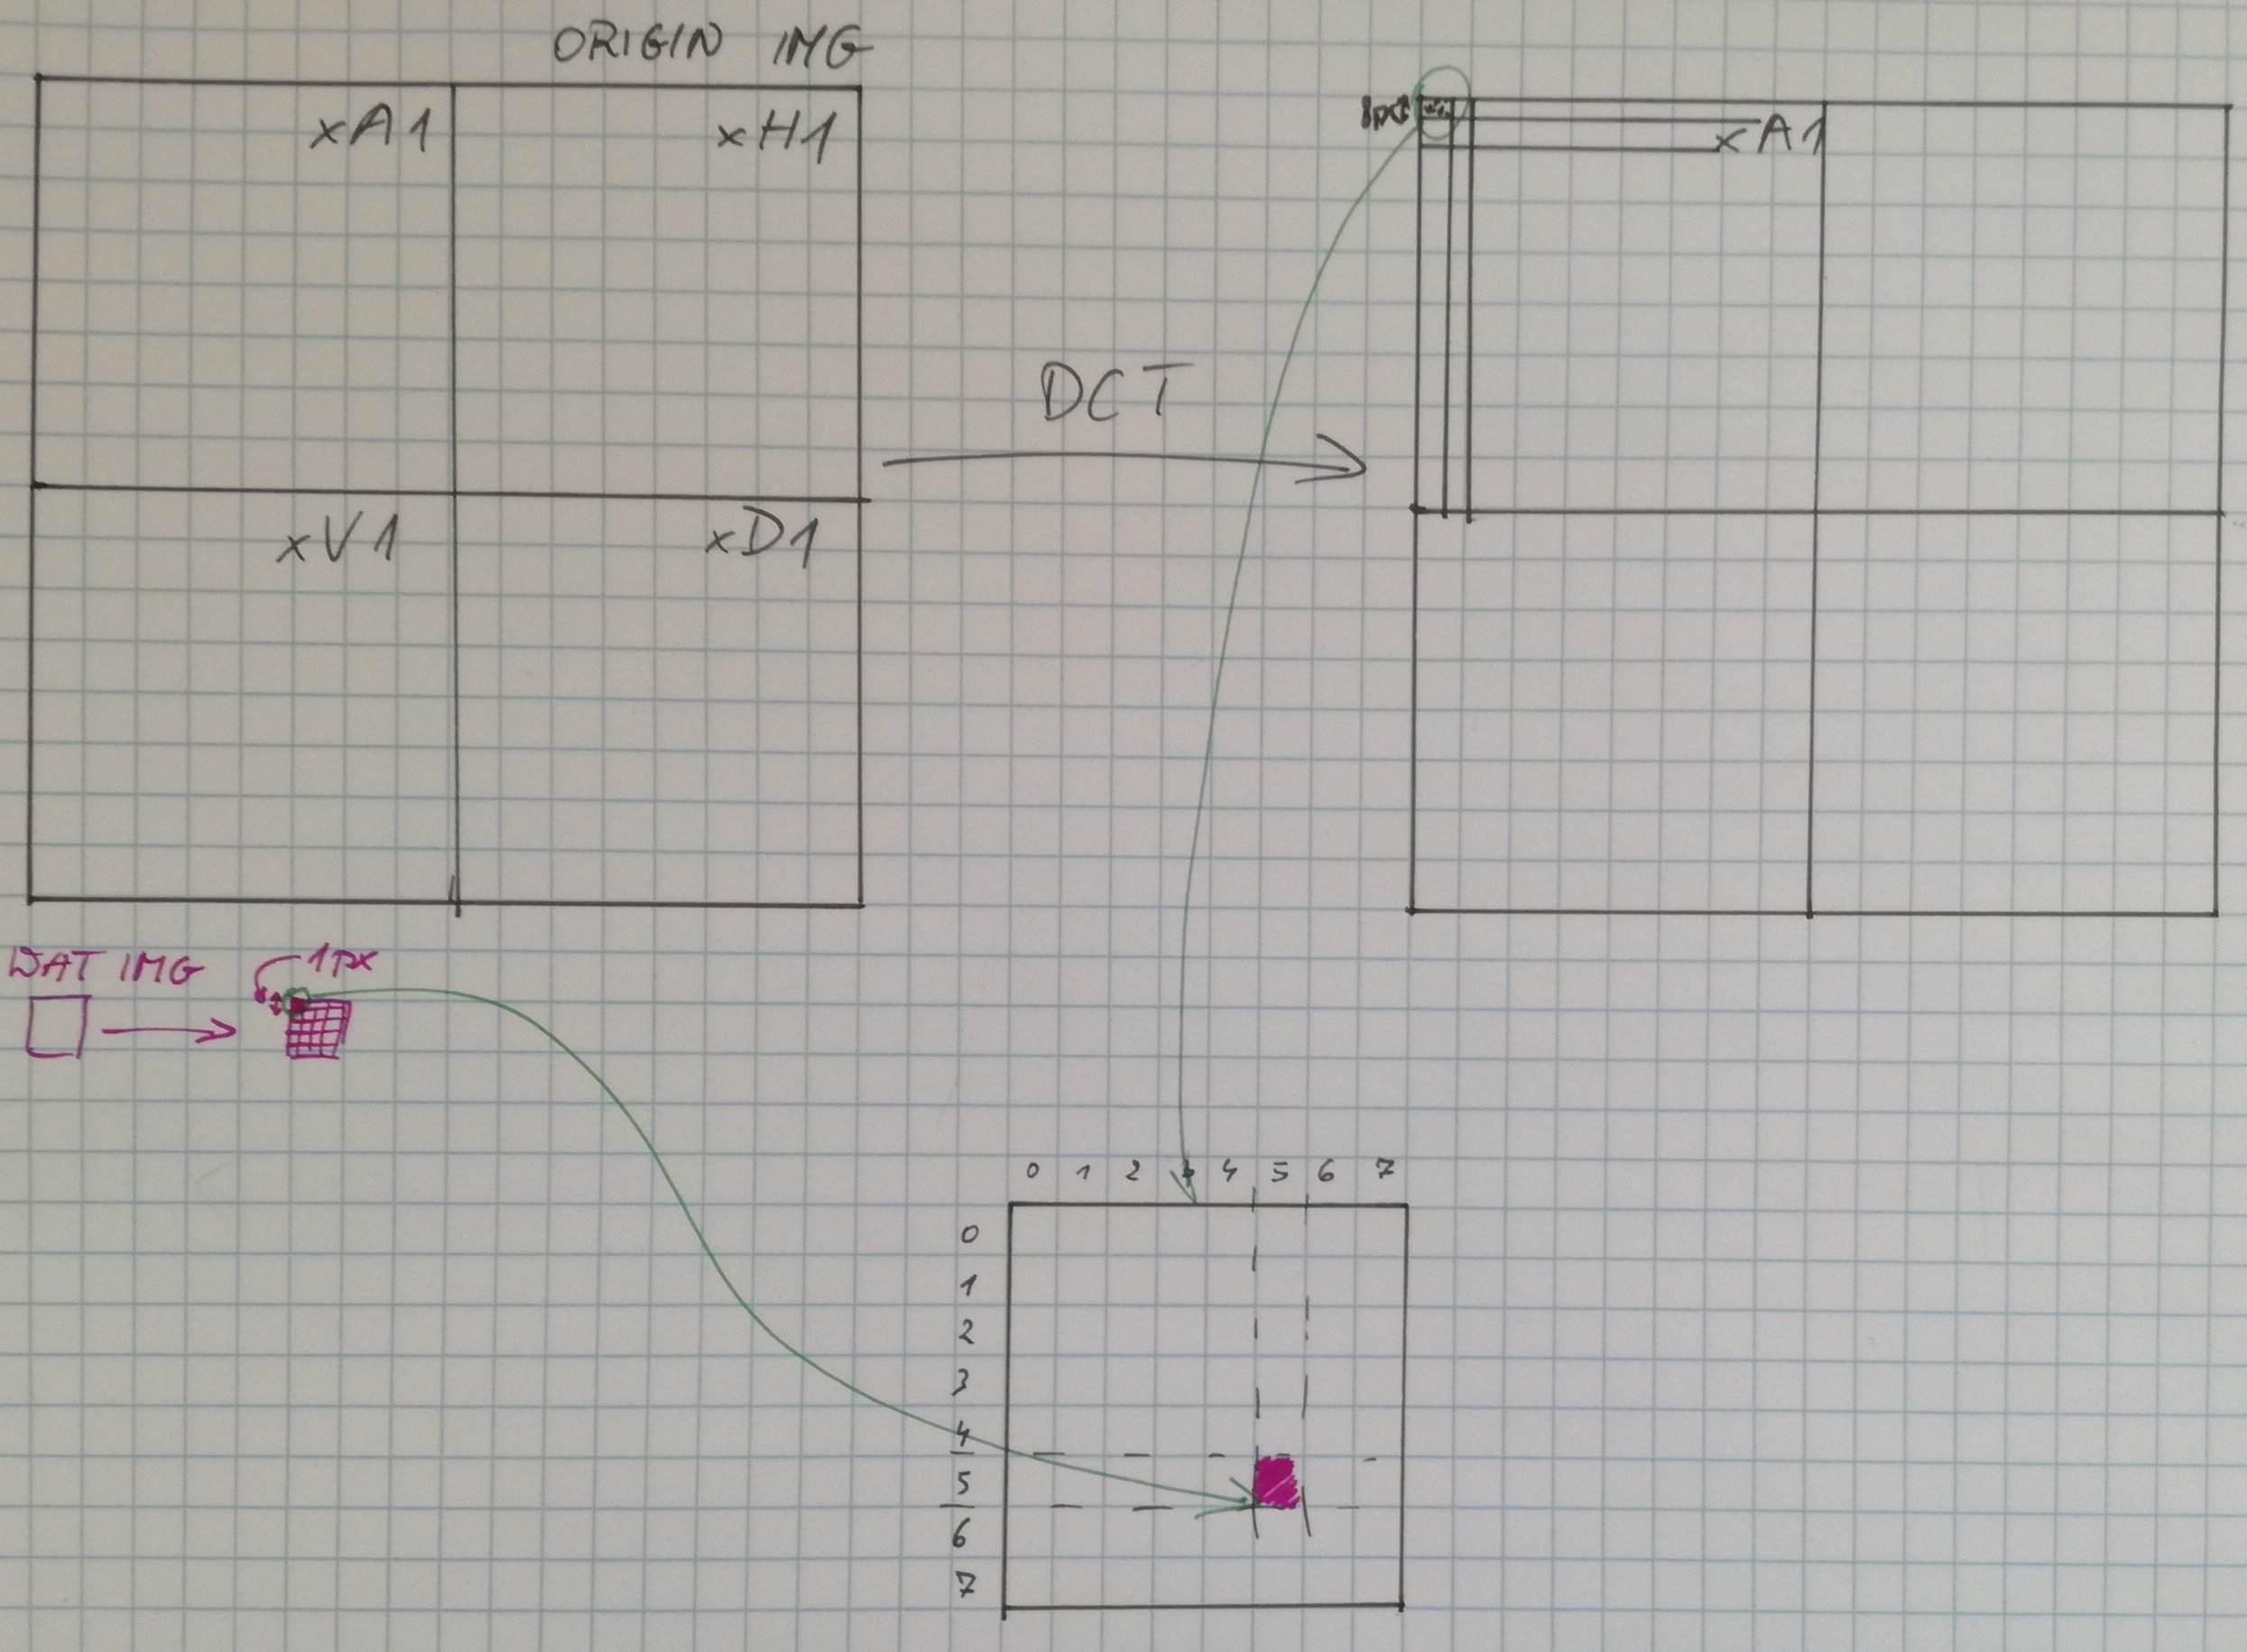 ORIGIN IMG
xA1
xH1
8px
xA1
DCT
xV1
xD1
WAT IMG
1px
0 1 2 3 4 5 6 7
0
1
2
3
4
5
6
7